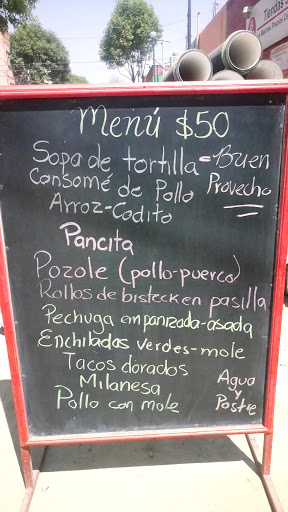 Tiendas
Menú $50
Sopa de tortilla = Buen
Consomé de Pollo Provecho
Arroz-Codito
Pancita
Pozole (pollo-puerco)
Rollos de bisteck en pasilla
Pechuga empanizada-asada
Enchiladas verdes-mole
Tacos dorados
Milanesa
Pollo con mole
Agua
y
Postre